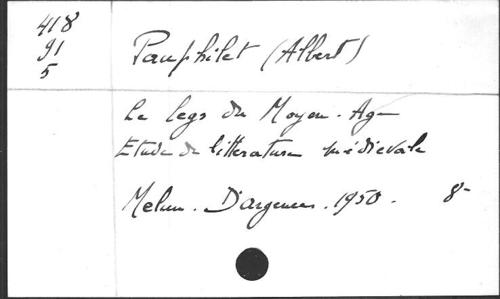 418
91
5
Pauphilet (Albert)
Le legs du Moyen-Age
Etude de litterature médievale
Melun. D'argences. 1950. 8-